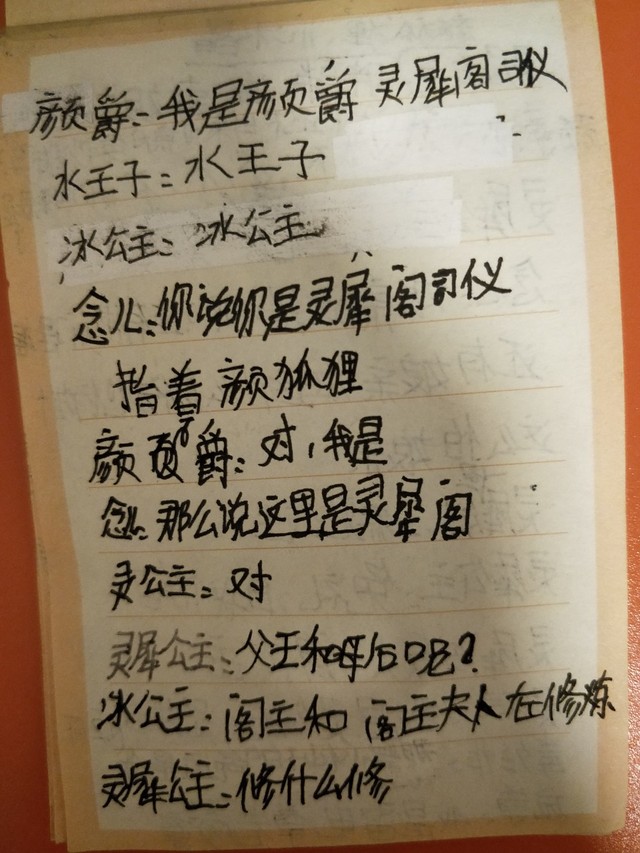 颜爵：我是颜爵 灵犀阁司仪
水王子：水王子
冰公主：冰公主
念儿：你说你是灵犀阁司仪
指着颜狐狸
颜爵：对，我是
念儿：那么说这里是灵犀阁
灵公主：对
灵犀公主：父王和母后呢？
冰公主：阁主和阁主夫人在修炼
灵犀公主：修什么修